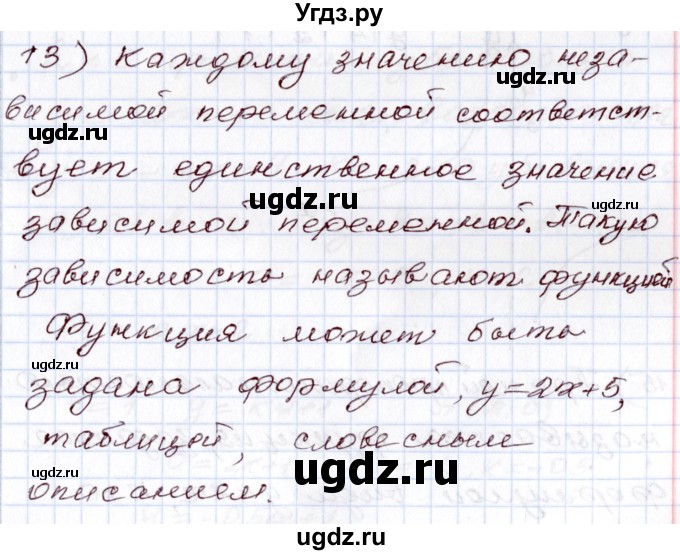 Угдз.ру
13) Каждому значению неза-
висимой переменной соответст-
вует единственное значение
зависимой переменной. Такую
зависимость называют функцией
Функция может быть
задана формулой, y=2x+5,
таблицей, словесным
описанием.
ugdz.ru
ugdz.ru
ugdz.ru
ugdz.ru
ugdz.ru
ugdz.ru
ugdz.ru
ugdz.ru
ugdz.ru
ugdz.ru
ugdz.ru
ugdz.ru
ugdz.ru